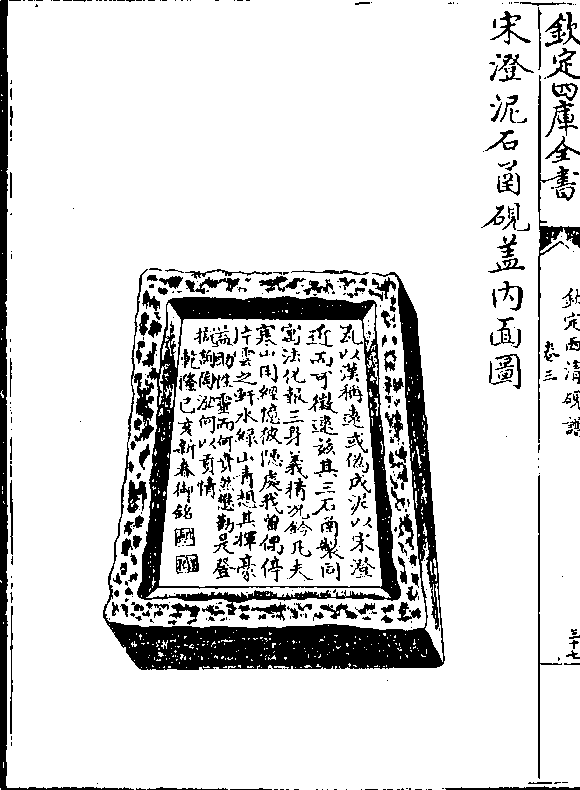 欽定四庫全書
欽定西清硯譜
卷三
三十七
宋澄泥石函硯蓋內面圖
瓦以漢稱遠或偽成泥以宋澄
近而可徵遠茲其三石函製同
寓法化報三身義精況凡夫
寒山用經憶彼隱處我曾偶停
片雲之軒水綠山青想其揮豪
益助性靈而何勤是登
摛詞陶泓何以貢情
乾隆己亥新春御銘